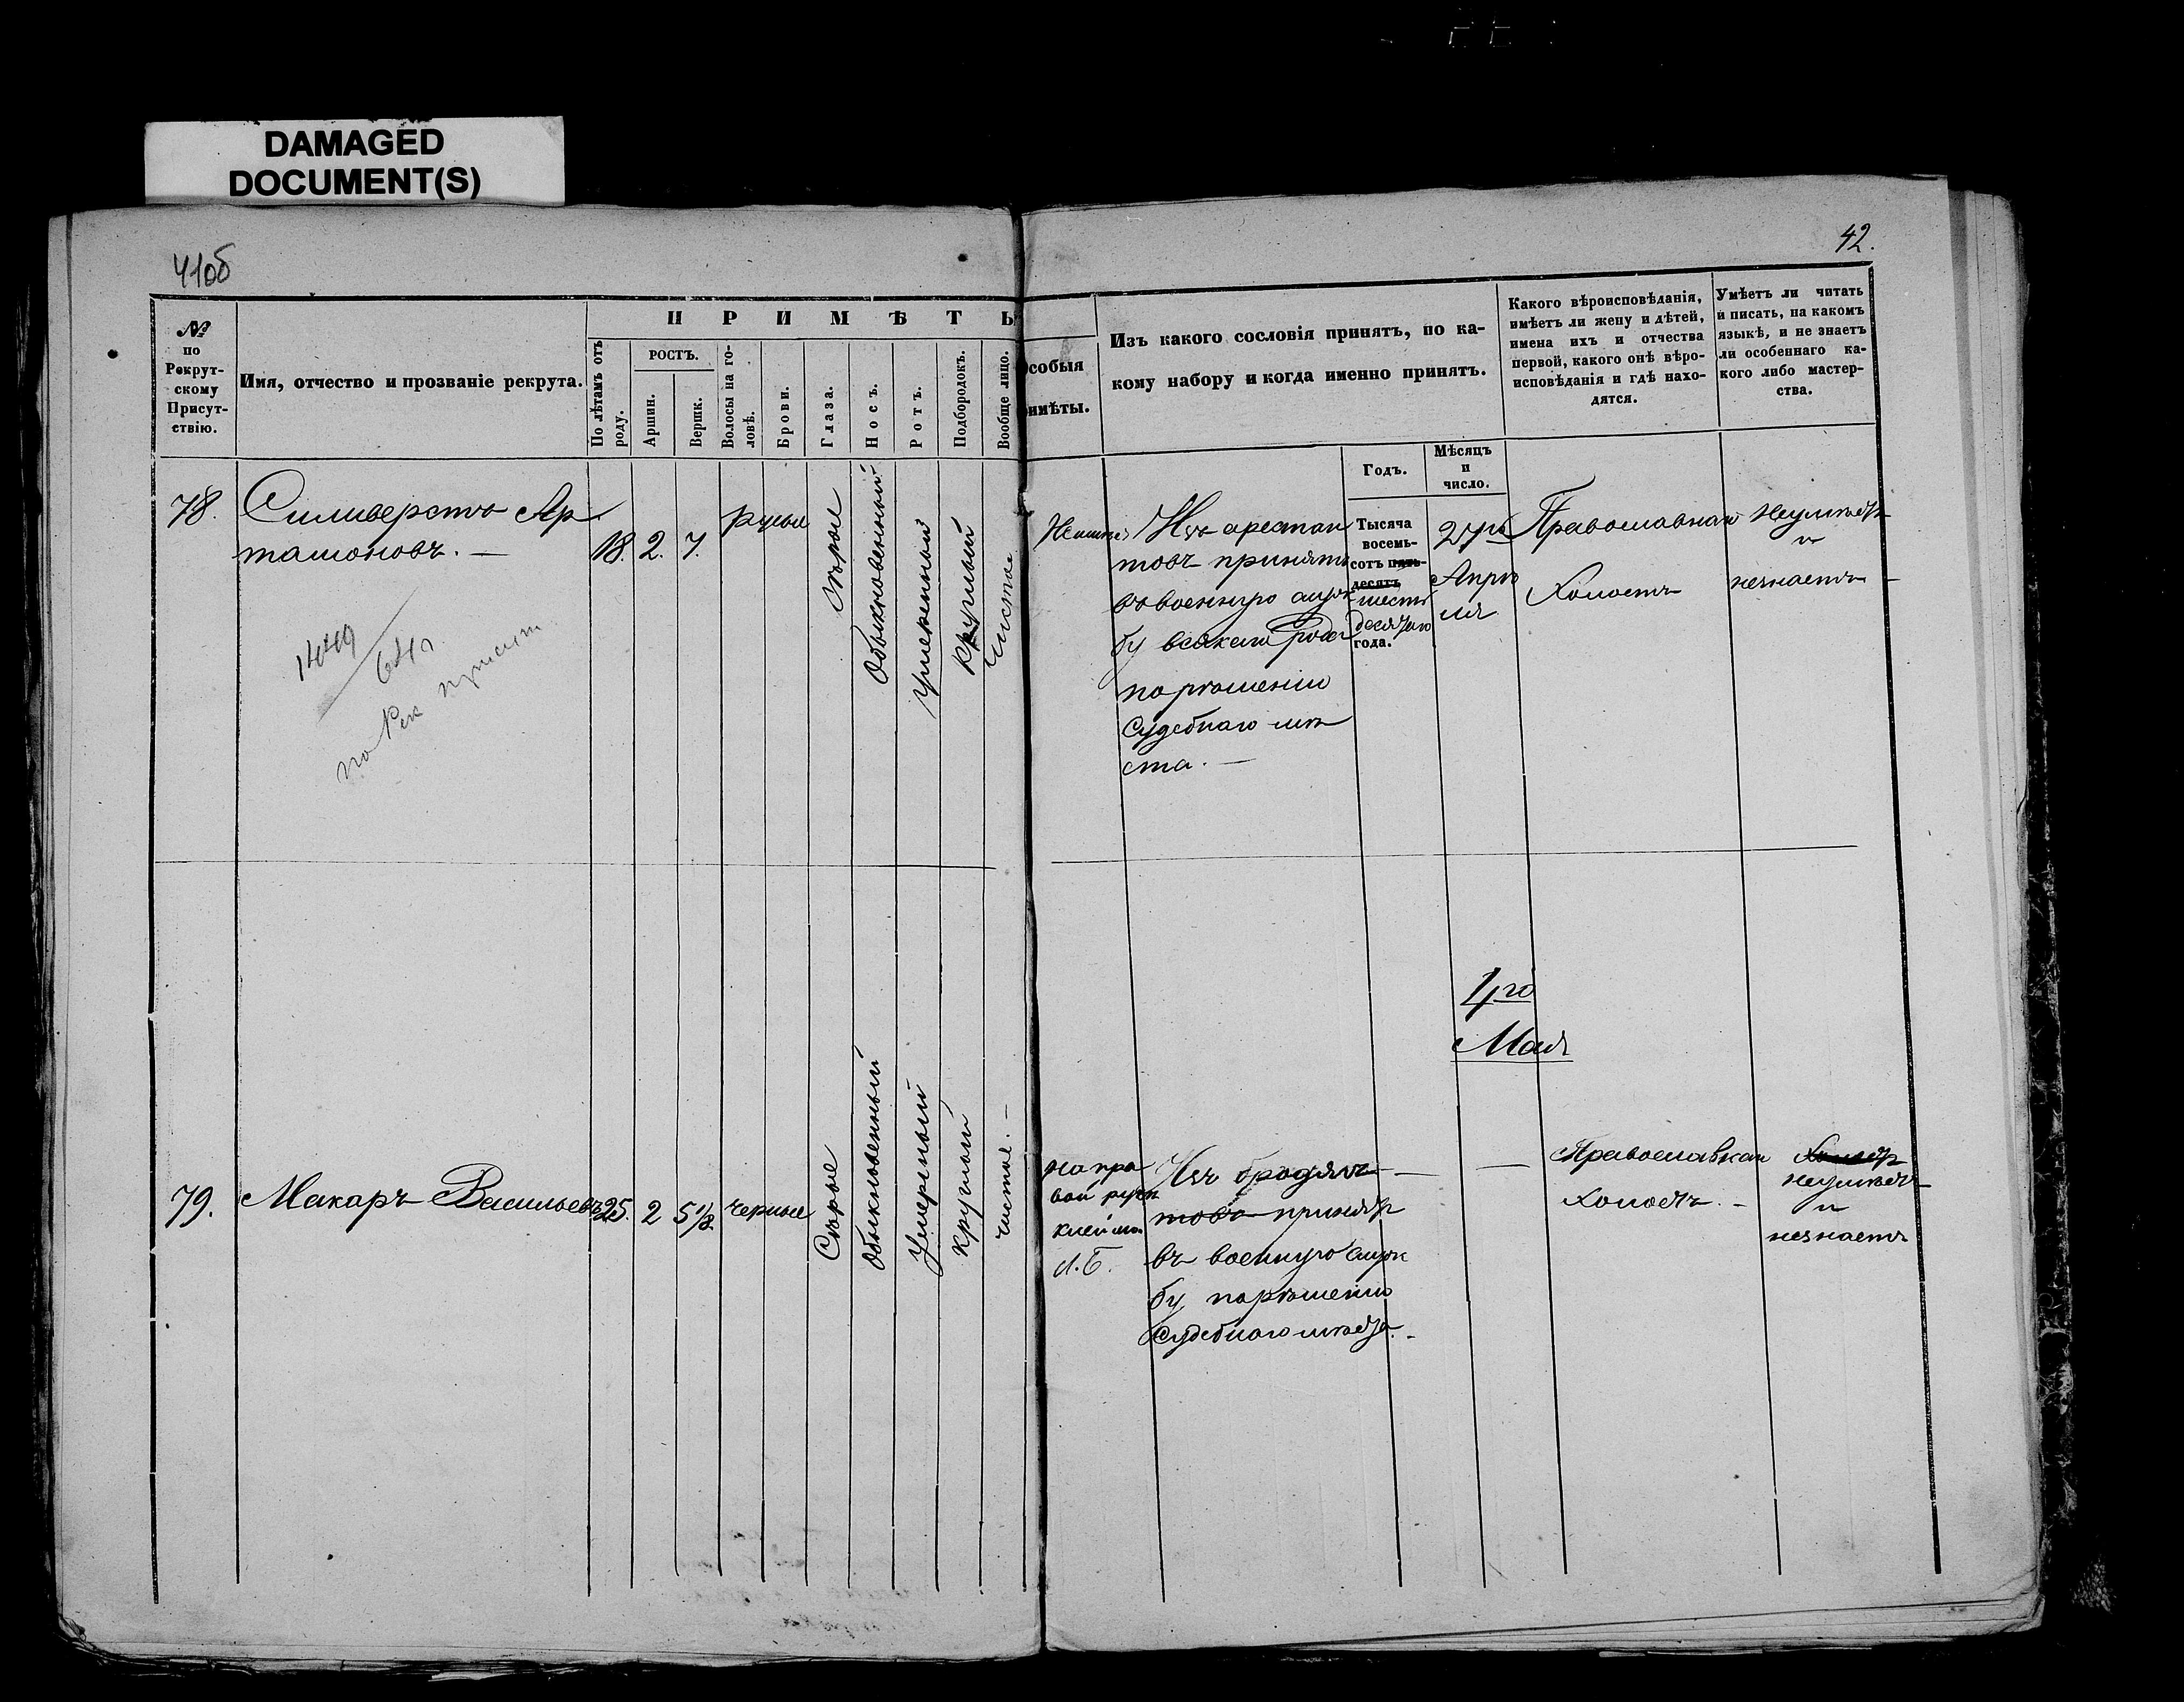 DAMAGED
DOCUMENT(S)
41об
42.
№
по
Рекрут-
скому
Присут-
ствію.
Имя, отчество и прозваніе рекрута.
ПРИМѢТЫ
По лѣтамъ отъ
роду.
РОСТЪ.
Аршин.
Вершк.
Волосы на го-
ловѣ.
Брови.
Глаза.
Носъ.
Ротъ.
Подбородокъ.
Вообще лицо.
собыя
имѣты.
Изъ какого сословія принятъ, по ка-
кому набору и когда именно принятъ.
Годъ.
Мѣсяцъ
и
число.
Какого вѣроисповѣданія,
имѣетъ ли жену и дѣтей,
имена ихъ и отчества
первой, какого онѣ вѣро-
исповѣданія и гдѣ нахо-
дятся.
Умѣетъ ли читать
и писать, на какомъ
языкѣ, и не знаетъ
ли особеннаго ка-
кого либо мастер-
ства.
78.
Силиверстъ Ар
тамоновъ. —
18. 2. 7.
русые
Сѣрые
Обыкновенный
Умеренный
Круглый
Чистое
Изъ арестан
товъ принятъ
въ военную служ
бу всякаго рода
по рѣшенію
Судебнаго мѣ
ста. —
Тысяча
восемь-
сотъ пять-
десятъ
шесть
десятаго
года.
27го
Апрѣ
ля
Православнаго
Холостъ
Неумѣетъ
и
незнаетъ
1449
64 г.
по Рек присут
1го
Мая
79.
Макаръ Васильевъ
25. 2 5 1/8
черные
Сѣрые
Обыкновенный
Умерный
круглый
чистое. —
на пра
вой рукѣ
клейма
Л.Б.
Изъ бродягъ
товъ принятъ
въ военную служ
бу по рѣшенію
Судебнаго мѣста. -
— —
Православнаго
холостъ. —
Холостъ
неумѣетъ
и
незнаетъ